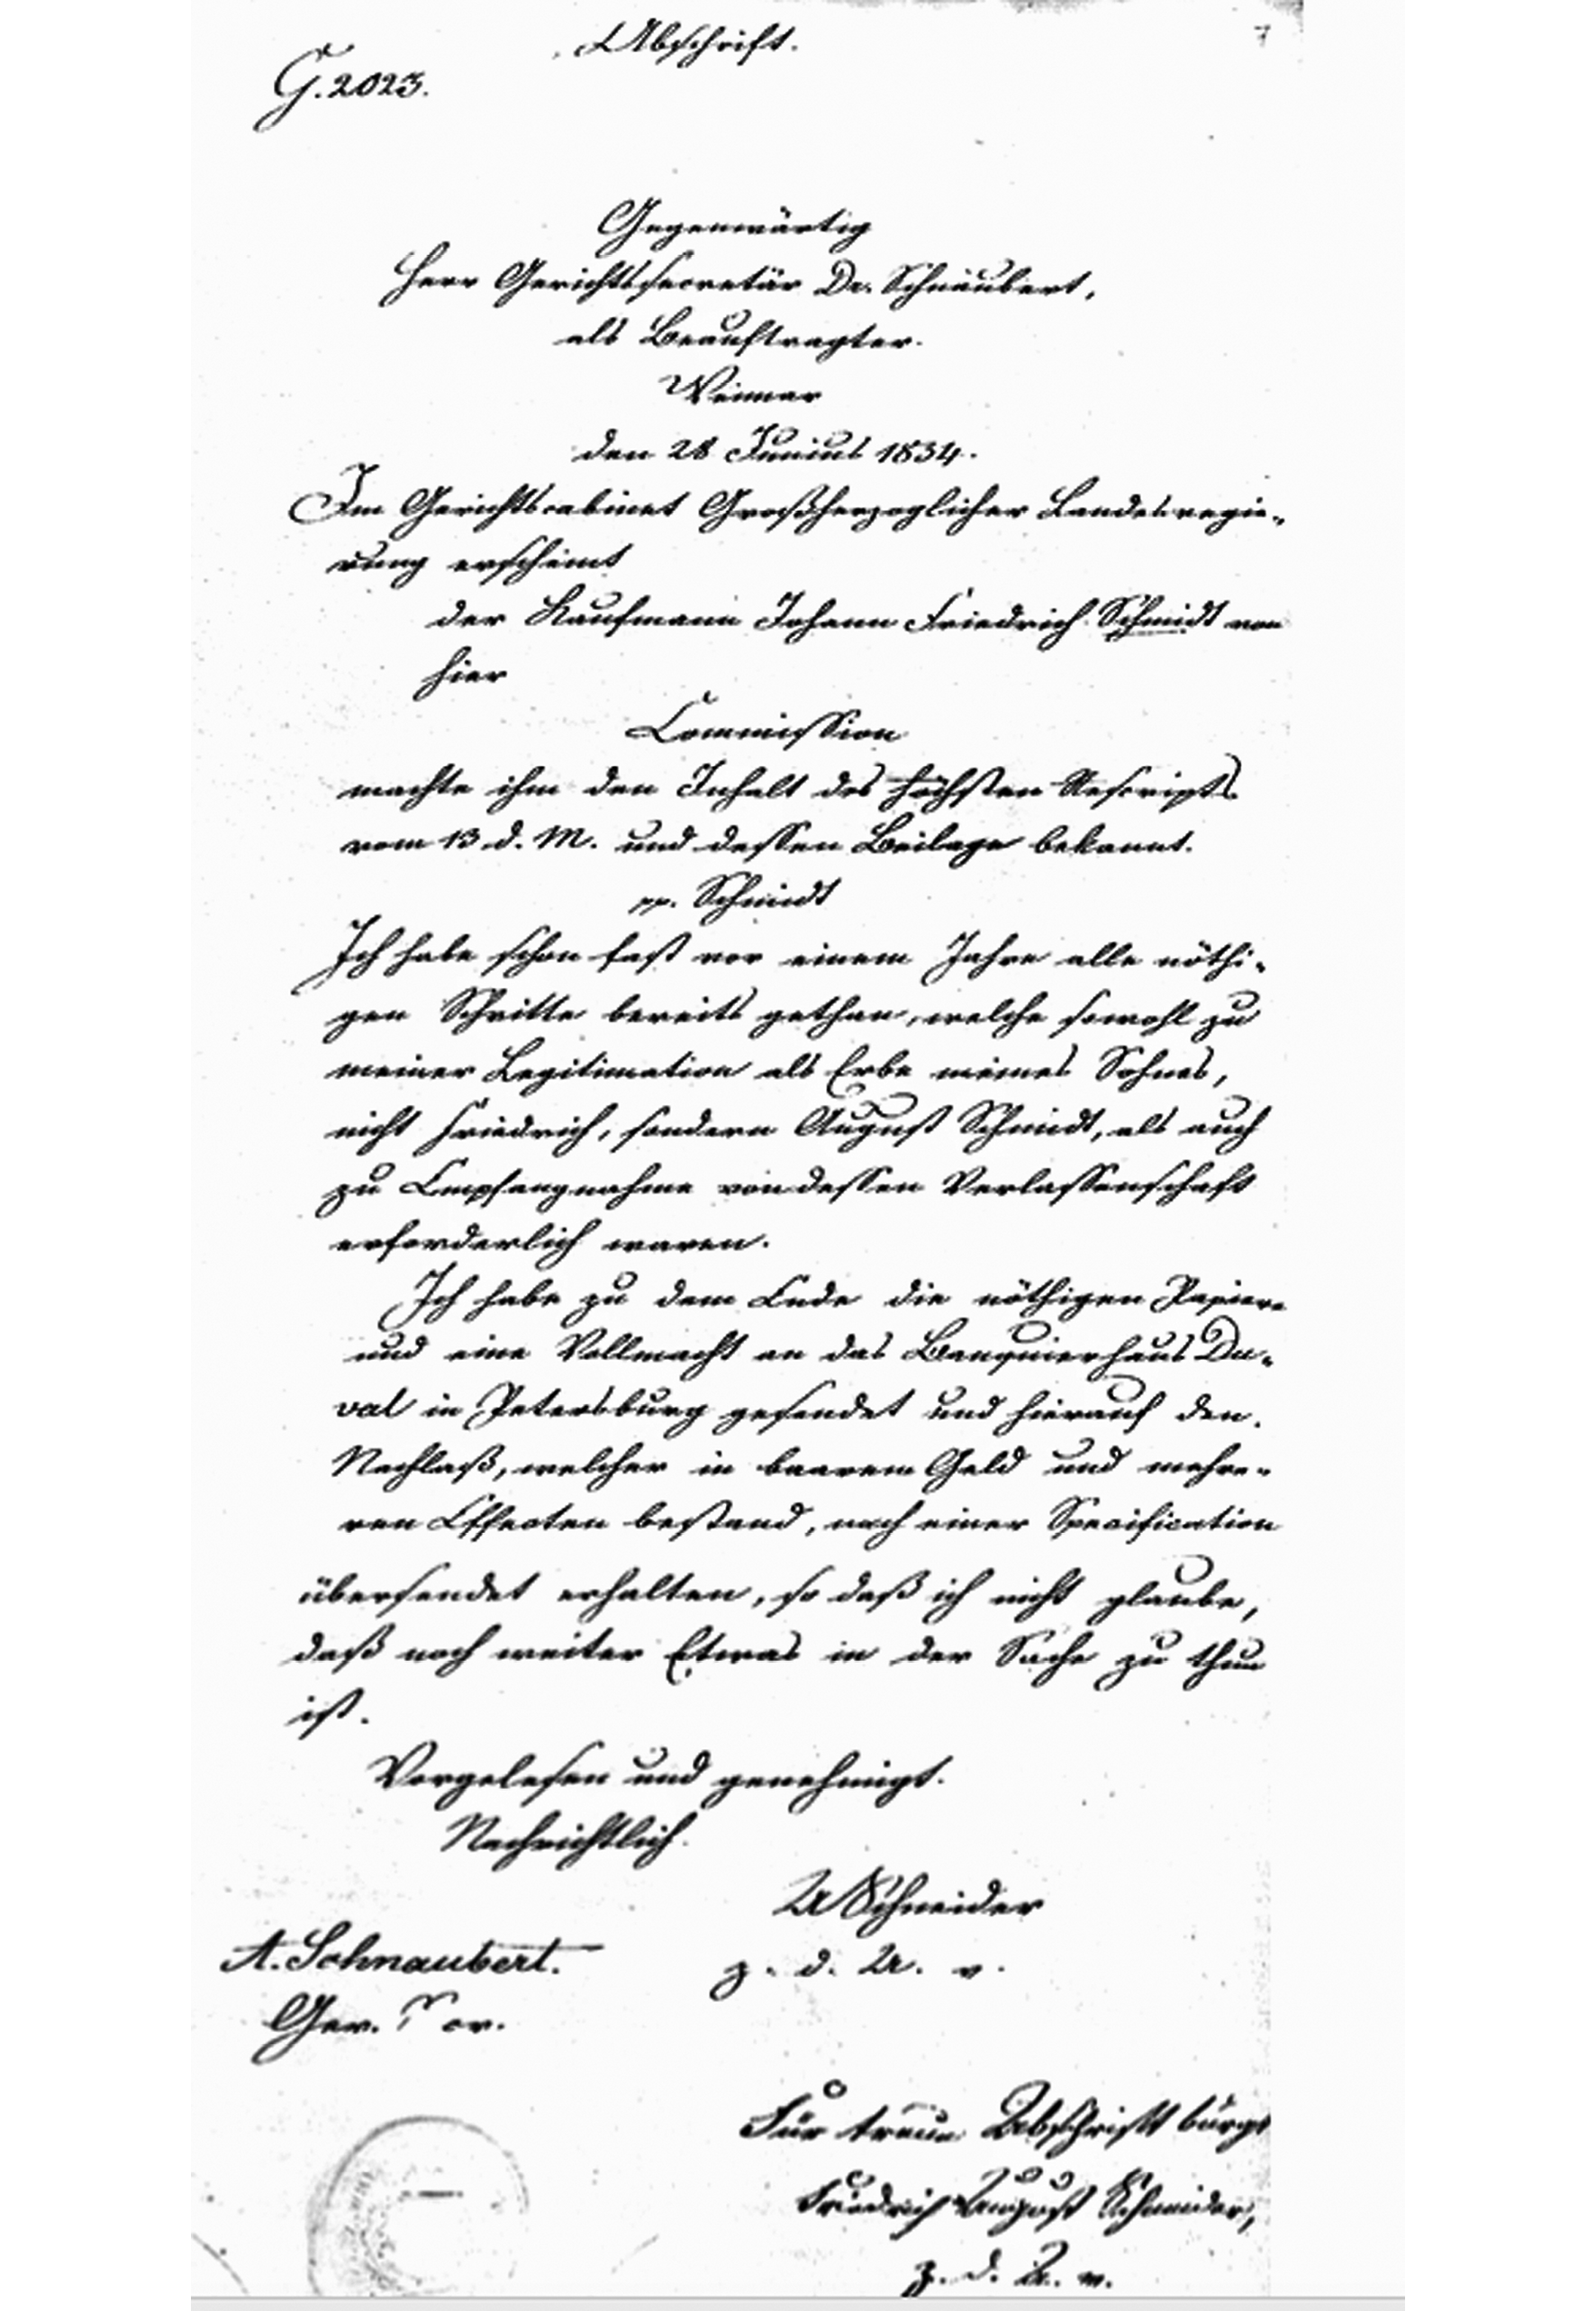 Abschrift.
7
G. 2023.
Gegenwärtig
Herr Gerichtssecretär Dr. Schnaubert,
als Beauftragter.
Weimar
den 28 Junius 1834.
Im Gerichtscabinet Großherzoglicher Landesregie-
rung erscheint
der Kaufmann Johann Friedrich Schmidt von
hier
Commission
machte ihm den Inhalt des höchsten Rescripts
vom 13 d. M. und dessen Beilage bekannt.
pp. Schmidt
Ich habe schon fast vor einem Jahre alle nöthi-
gen Schritte bereits gethan, welche sowohl zu
meiner Legitimation als Erbe meines Sohnes,
nicht Friedrich, sondern August Schmidt, als auch
zu Empfangnahme von dessen Verlassenschaft
erforderlich waren.
Ich habe zu dem Ende die nöthigen Papiere
und eine Vollmacht an das Banquierhaus Du-
val in Petersburg gesendet und hierauf den
Nachlaß, welcher in baarem Geld und mehre-
ren Effecten bestand, nach einer Specification
übersendet erhalten, so daß ich nicht glaube,
daß noch weiter Etwas in der Sache zu thun
ist.
Vorgelesen und genehmigt.
Nachrichtlich.
A Schneider
A. Schnaubert.
z. d. A. v.
Ger.
Für treue Abschrift bürgt
Friedrich August Schneider,
z. d. A. v.